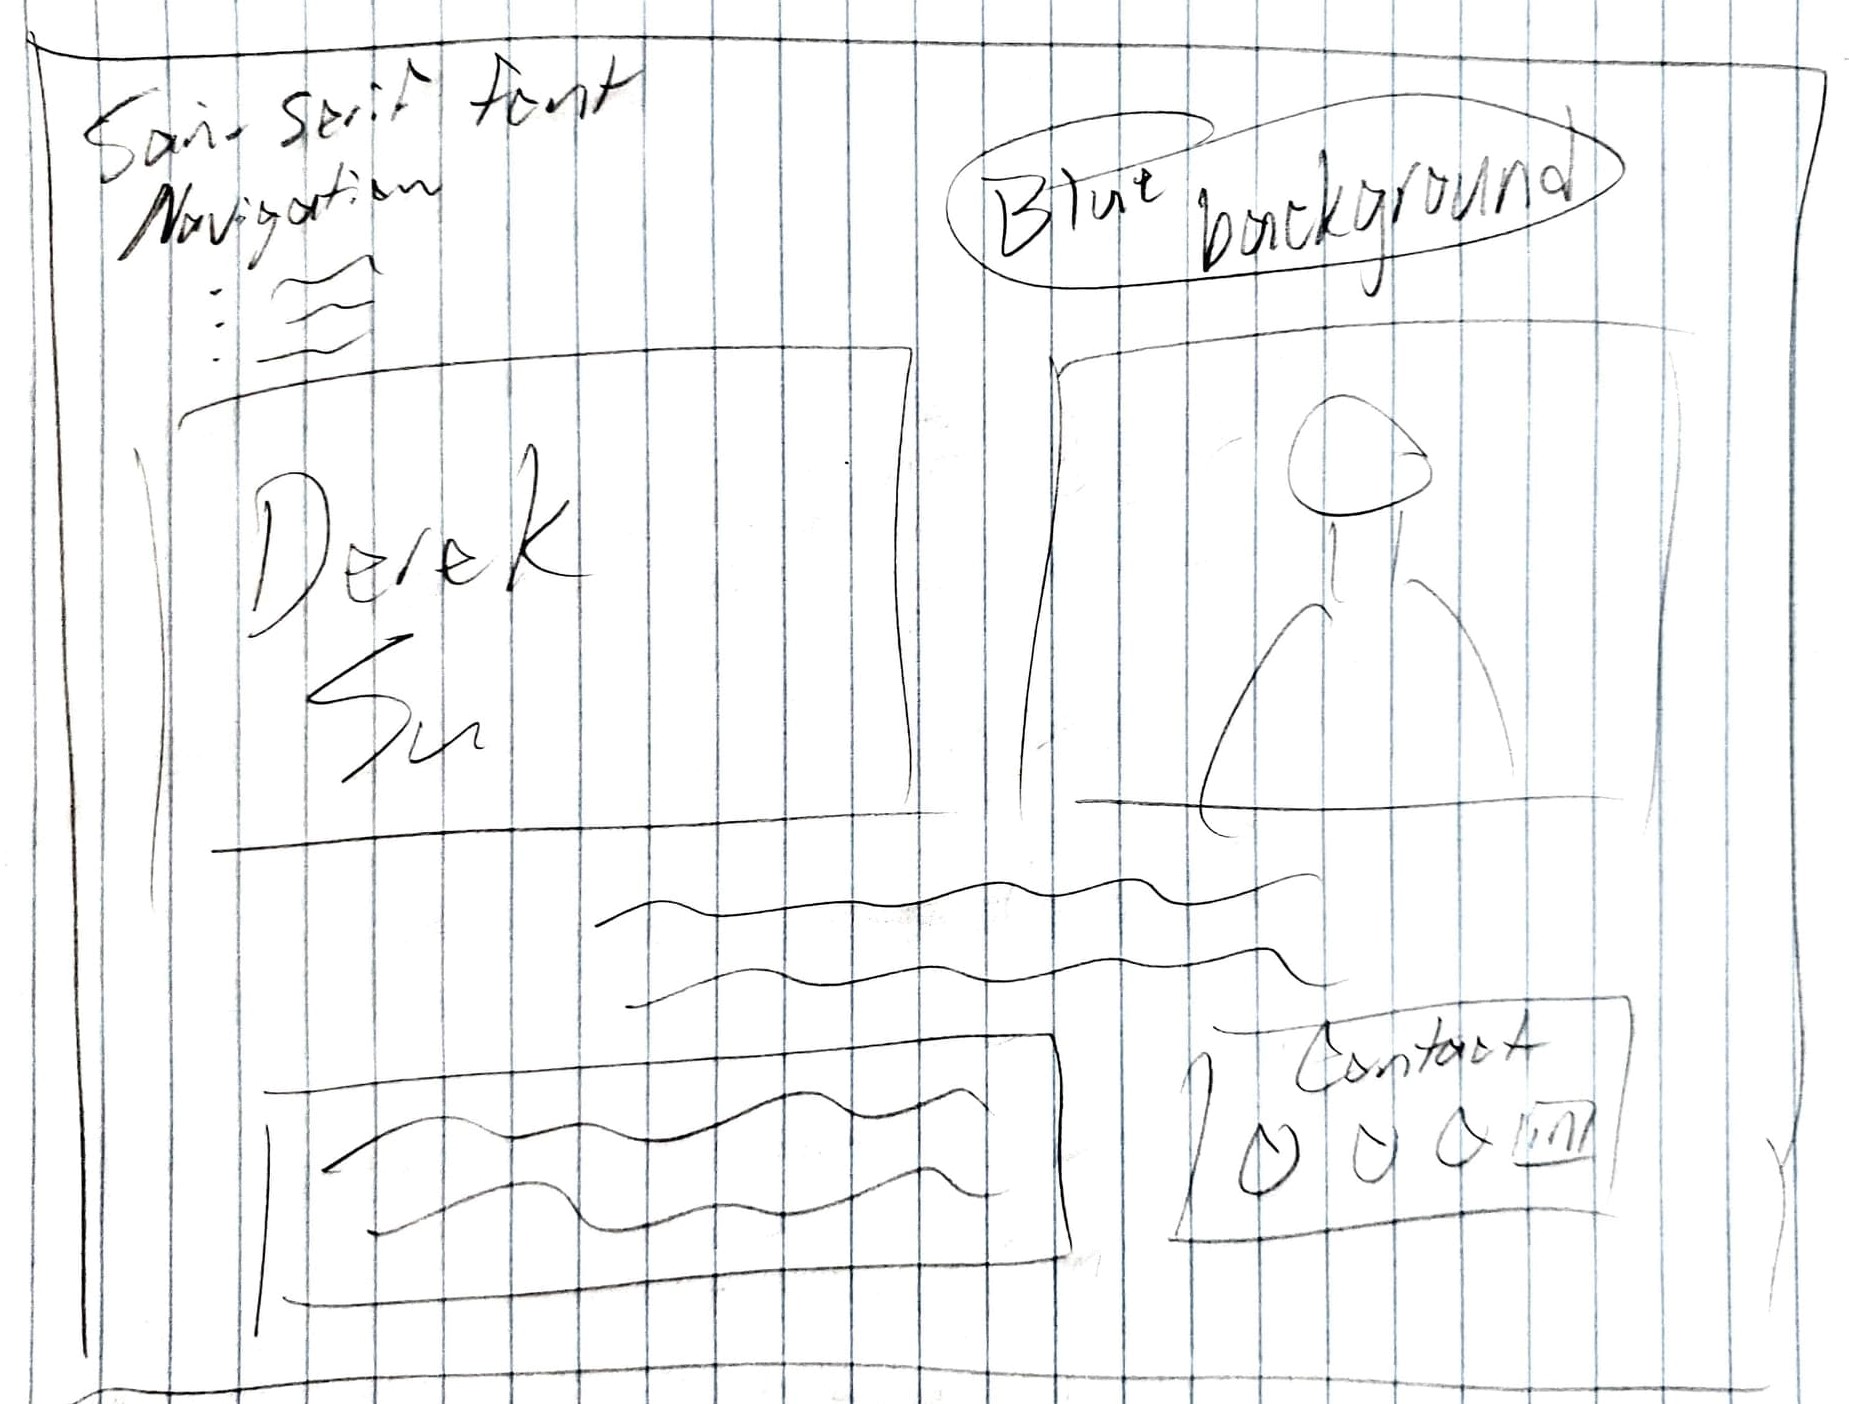 San-serif font
Navigation
Blue background
Derek
Su
Contact
in